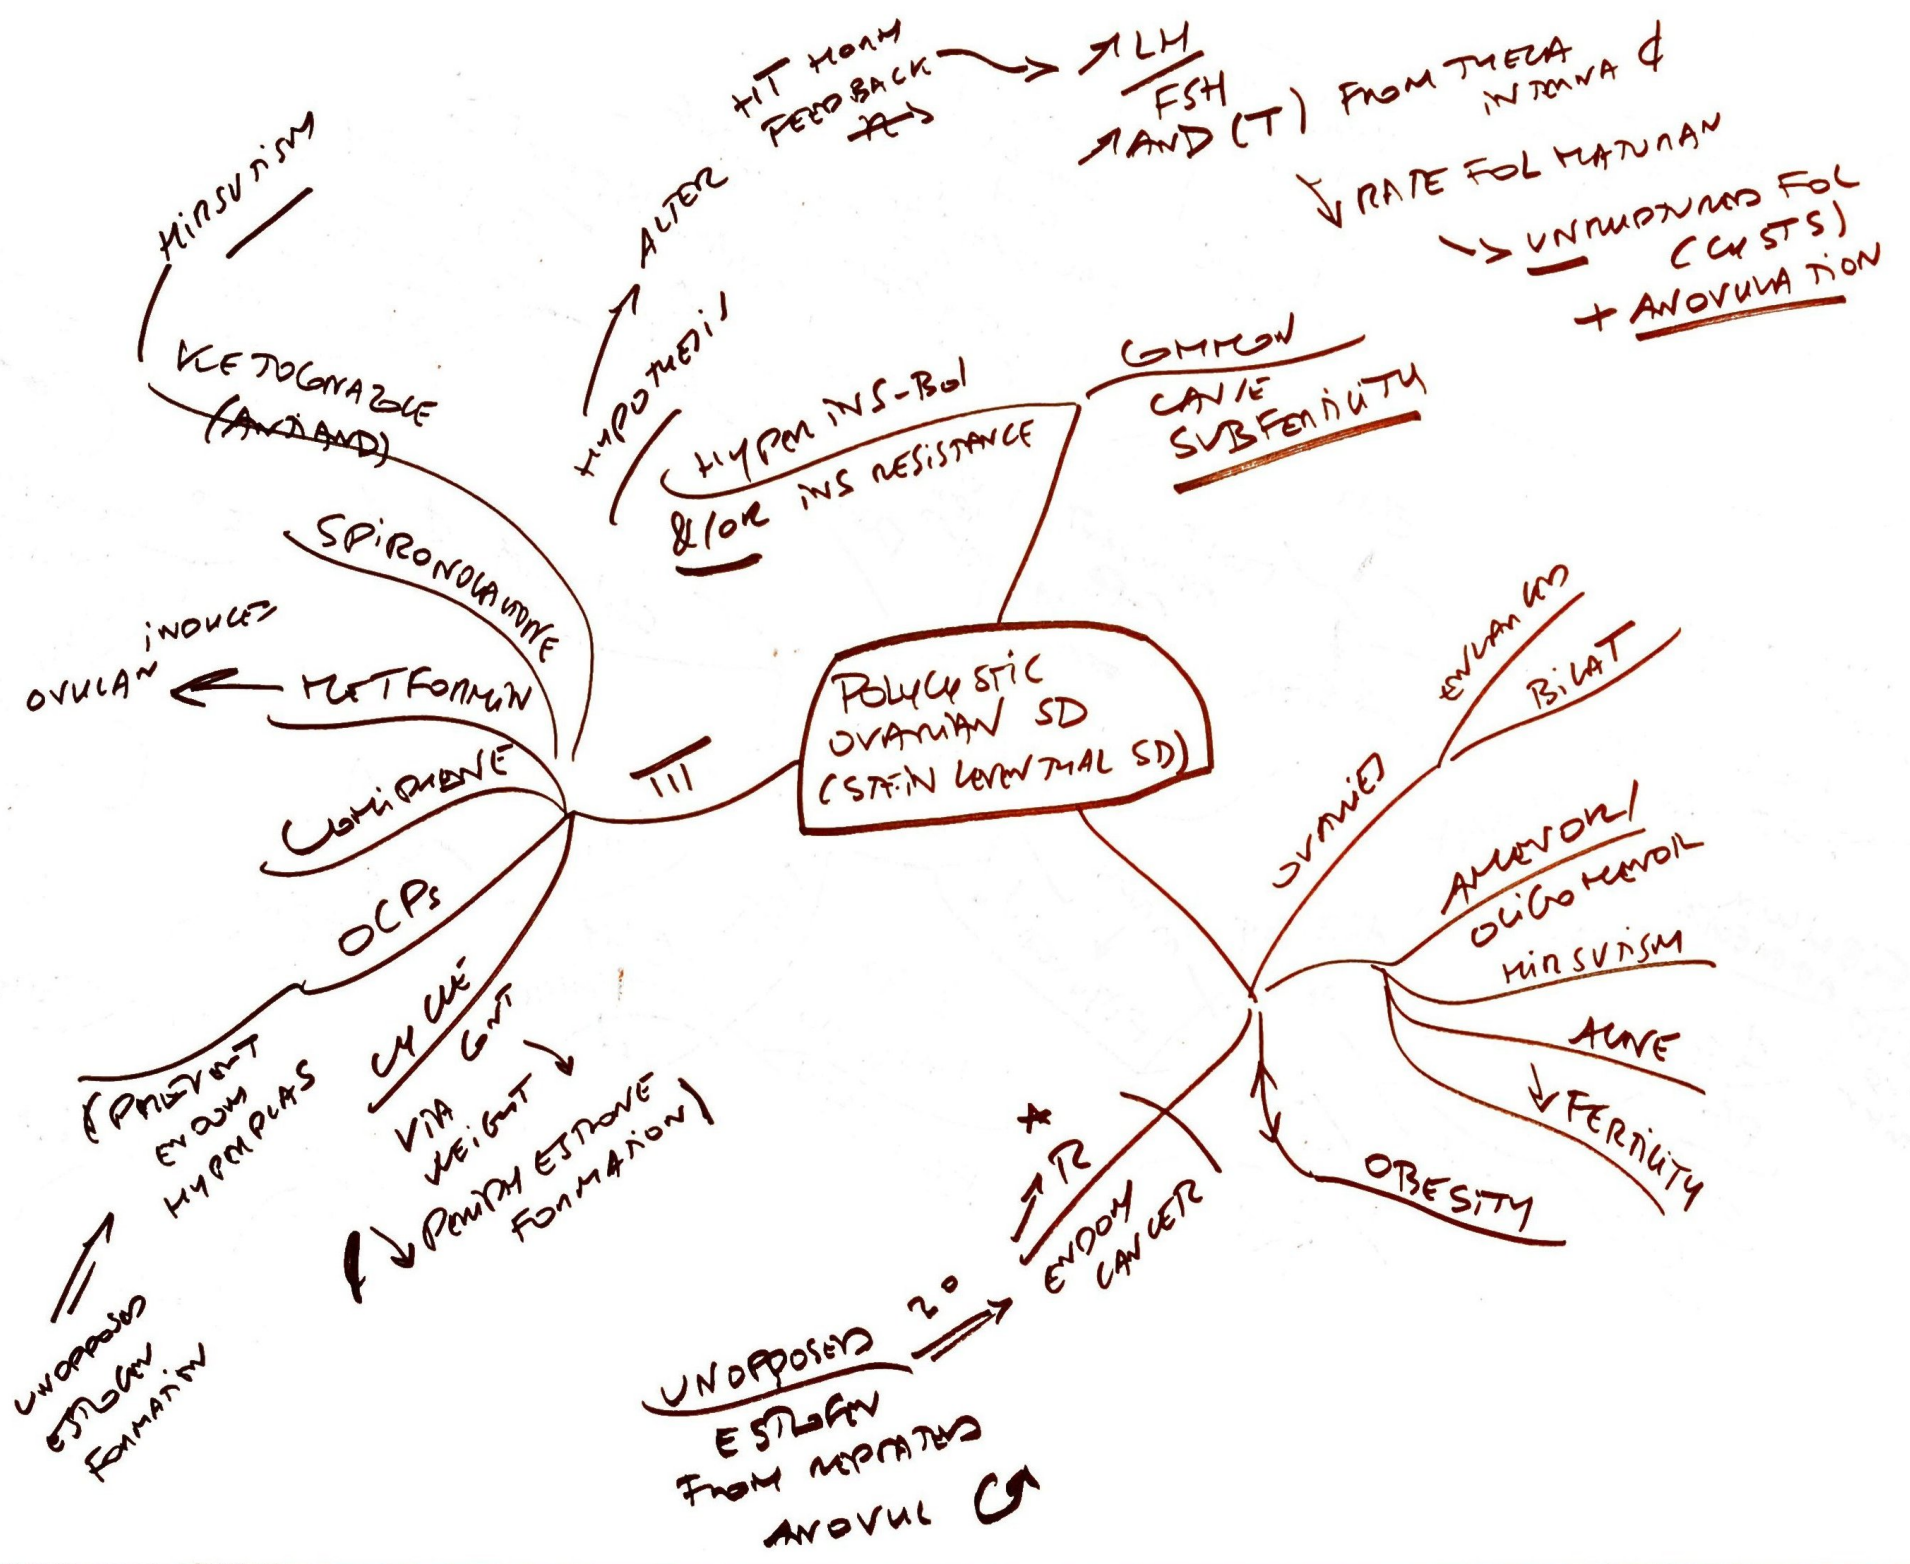 POLYCYSTIC
OVARIAN SD
(STEIN LEVENTHAL SD)
COMMON
CAUSE
SUBFERTILITY
HYPER INS-BOL
&/OR INS RESISTANCE
HYPOTHESIS
ALTER
HIT HORM
FEEDBACK
↗ LH
FSH
↗ AND (T) FROM THECA
INTERNA
↓ RATE FOL MATURAN
→ UNRUPTURED FOL
(CYSTS)
+ ANOVULATION
OVARIES
ENLARGED
BILAT
AMENOR/
OLIGOMENOR
HIRSUTISM
ACNE
↓ FERTILITY
OBESITY
↗ R
ENDOM
CANCER
2°
UNOPPOSED
ESTROGEN
FROM REPEATED
ANOVUL
III
HIRSUTISM
KETOCONAZOLE
(ANTIAND)
SPIRONOLACTONE
METFORMIN
INDUCES
OVULAN
CLOMIPHENE
OCPs
(PREVENT
ENDOM
HYPERPLAS
UNOPPOSED
ESTROGEN
FORMATION
CYCLE
CONT
VIA
WEIGHT ↓
(↓ PERIPH ESTRONE
FORMATION)